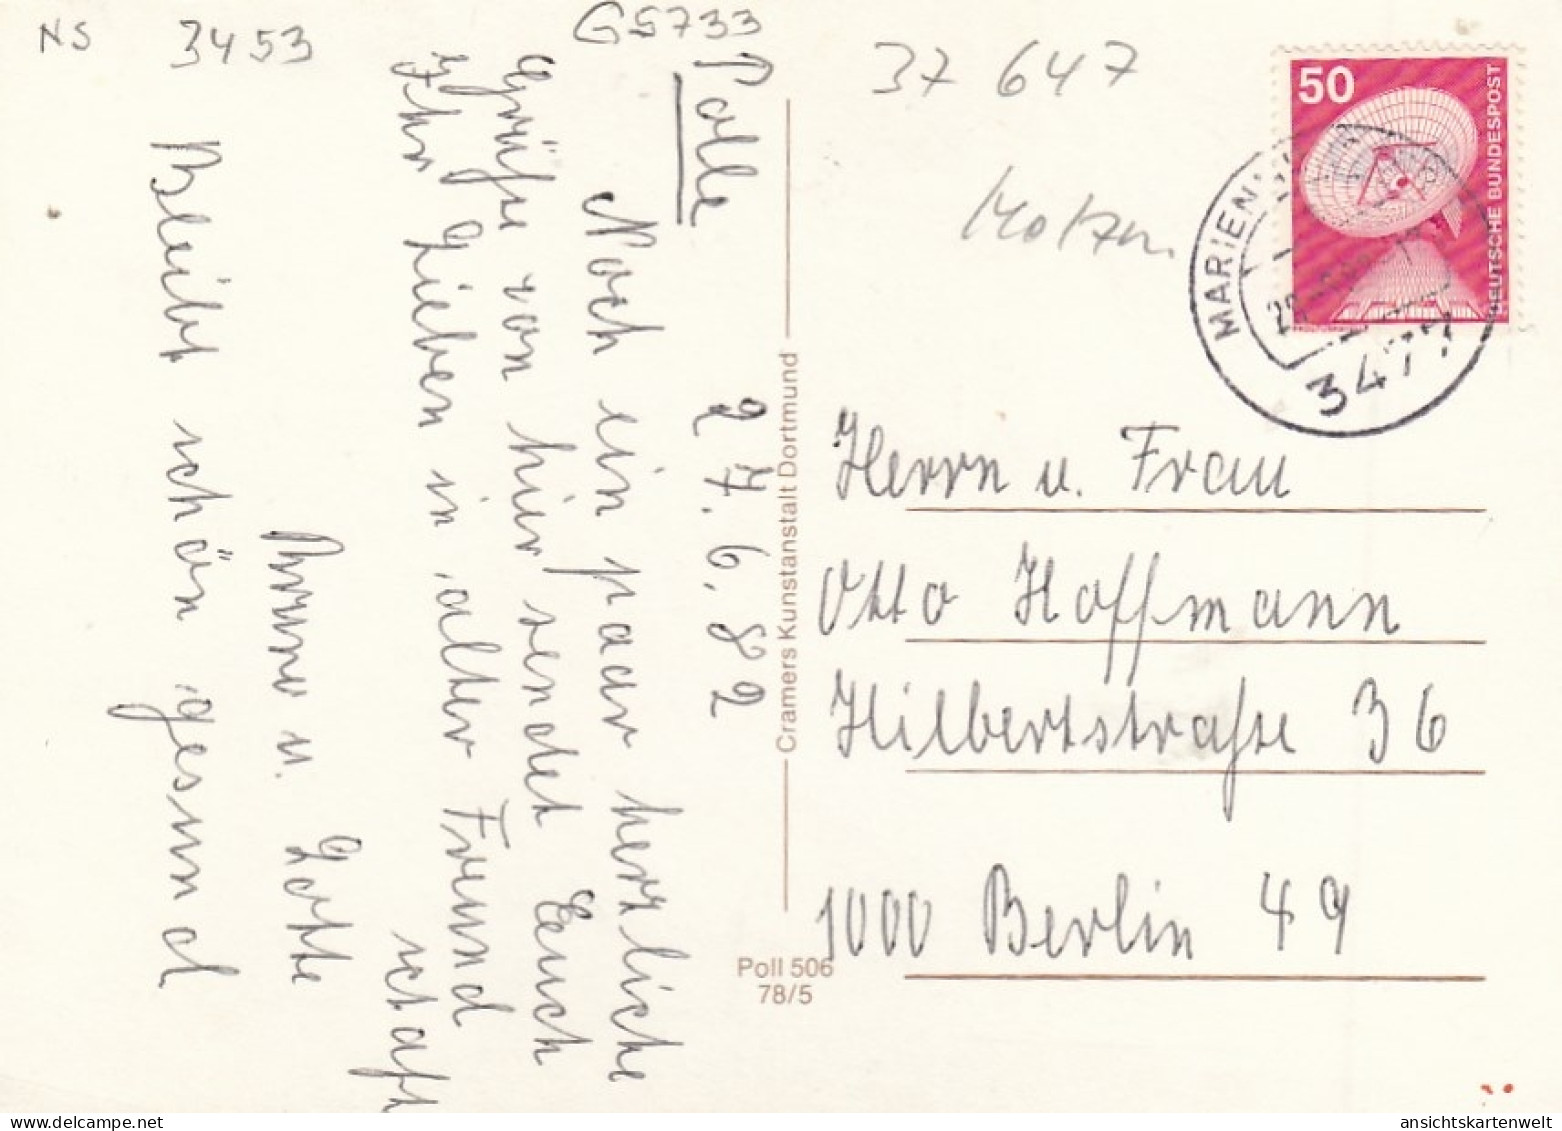 NS
3453
G5733
37 647
50
DEUTSCHE BUNDESPOST
3477
Polle
27.6.82
Noch ein paar herzliche
Grüße von hier sendet Euch
Ihr Lieben in alter Freund
schaft
Bruno u. Lotte
Bleibt schön gesund
Cramers Kunstanstalt Dortmund
Poll 506
78/5
Herrn u. Frau
Otto Hoffmann
Hilbertstraße 36
1000 Berlin 49
www.delcampe.net
ansichtskartenwelt